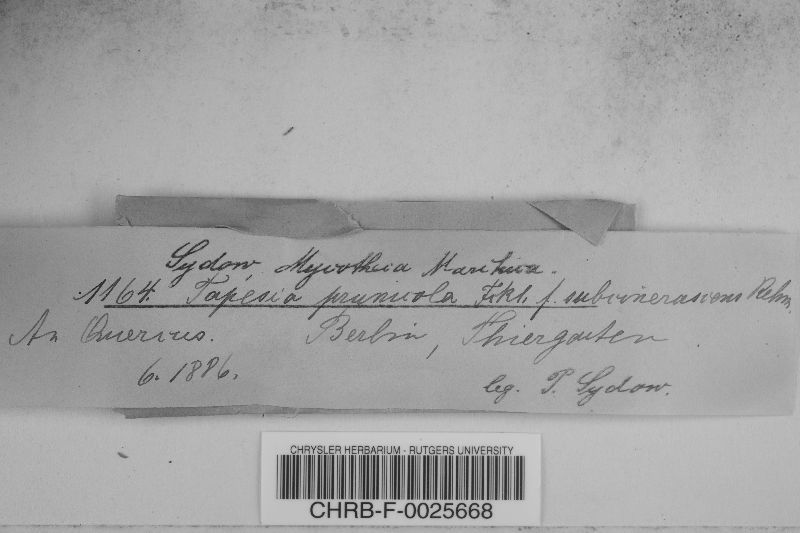 Sydow, Mycotheca Marchica.
1164. Tapesia prunicola Fckl. f. subcinerascens Rehm.
An Quercus. Berlin, Thiergarten
6. 1886. leg. P. Sydow.
CHRYSLER HERBARIUM - RUTGERS UNIVERSITY
CHRB-F-0025668